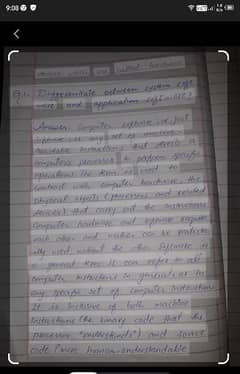 9:08
Q.1. Differentiate between system soft
ware and application software?
Answer: Computer software or just
software is any set of machine
readable instructions that directs a
computer's processor to perform specific
operations. The term is used to
contrast with computer hardware, the
physical objects (processor and related
devices) that carry out the instructions
Computer hardware and software require
each other and neither can be realistic
ally used without the other. Software is
a general term. It can refer to all
computer instructions in general or to
any specific set of computer instructions.
It is inclusive of both machine
instructions (the binary code that the
processor "understands") and source
code (more human-understandable